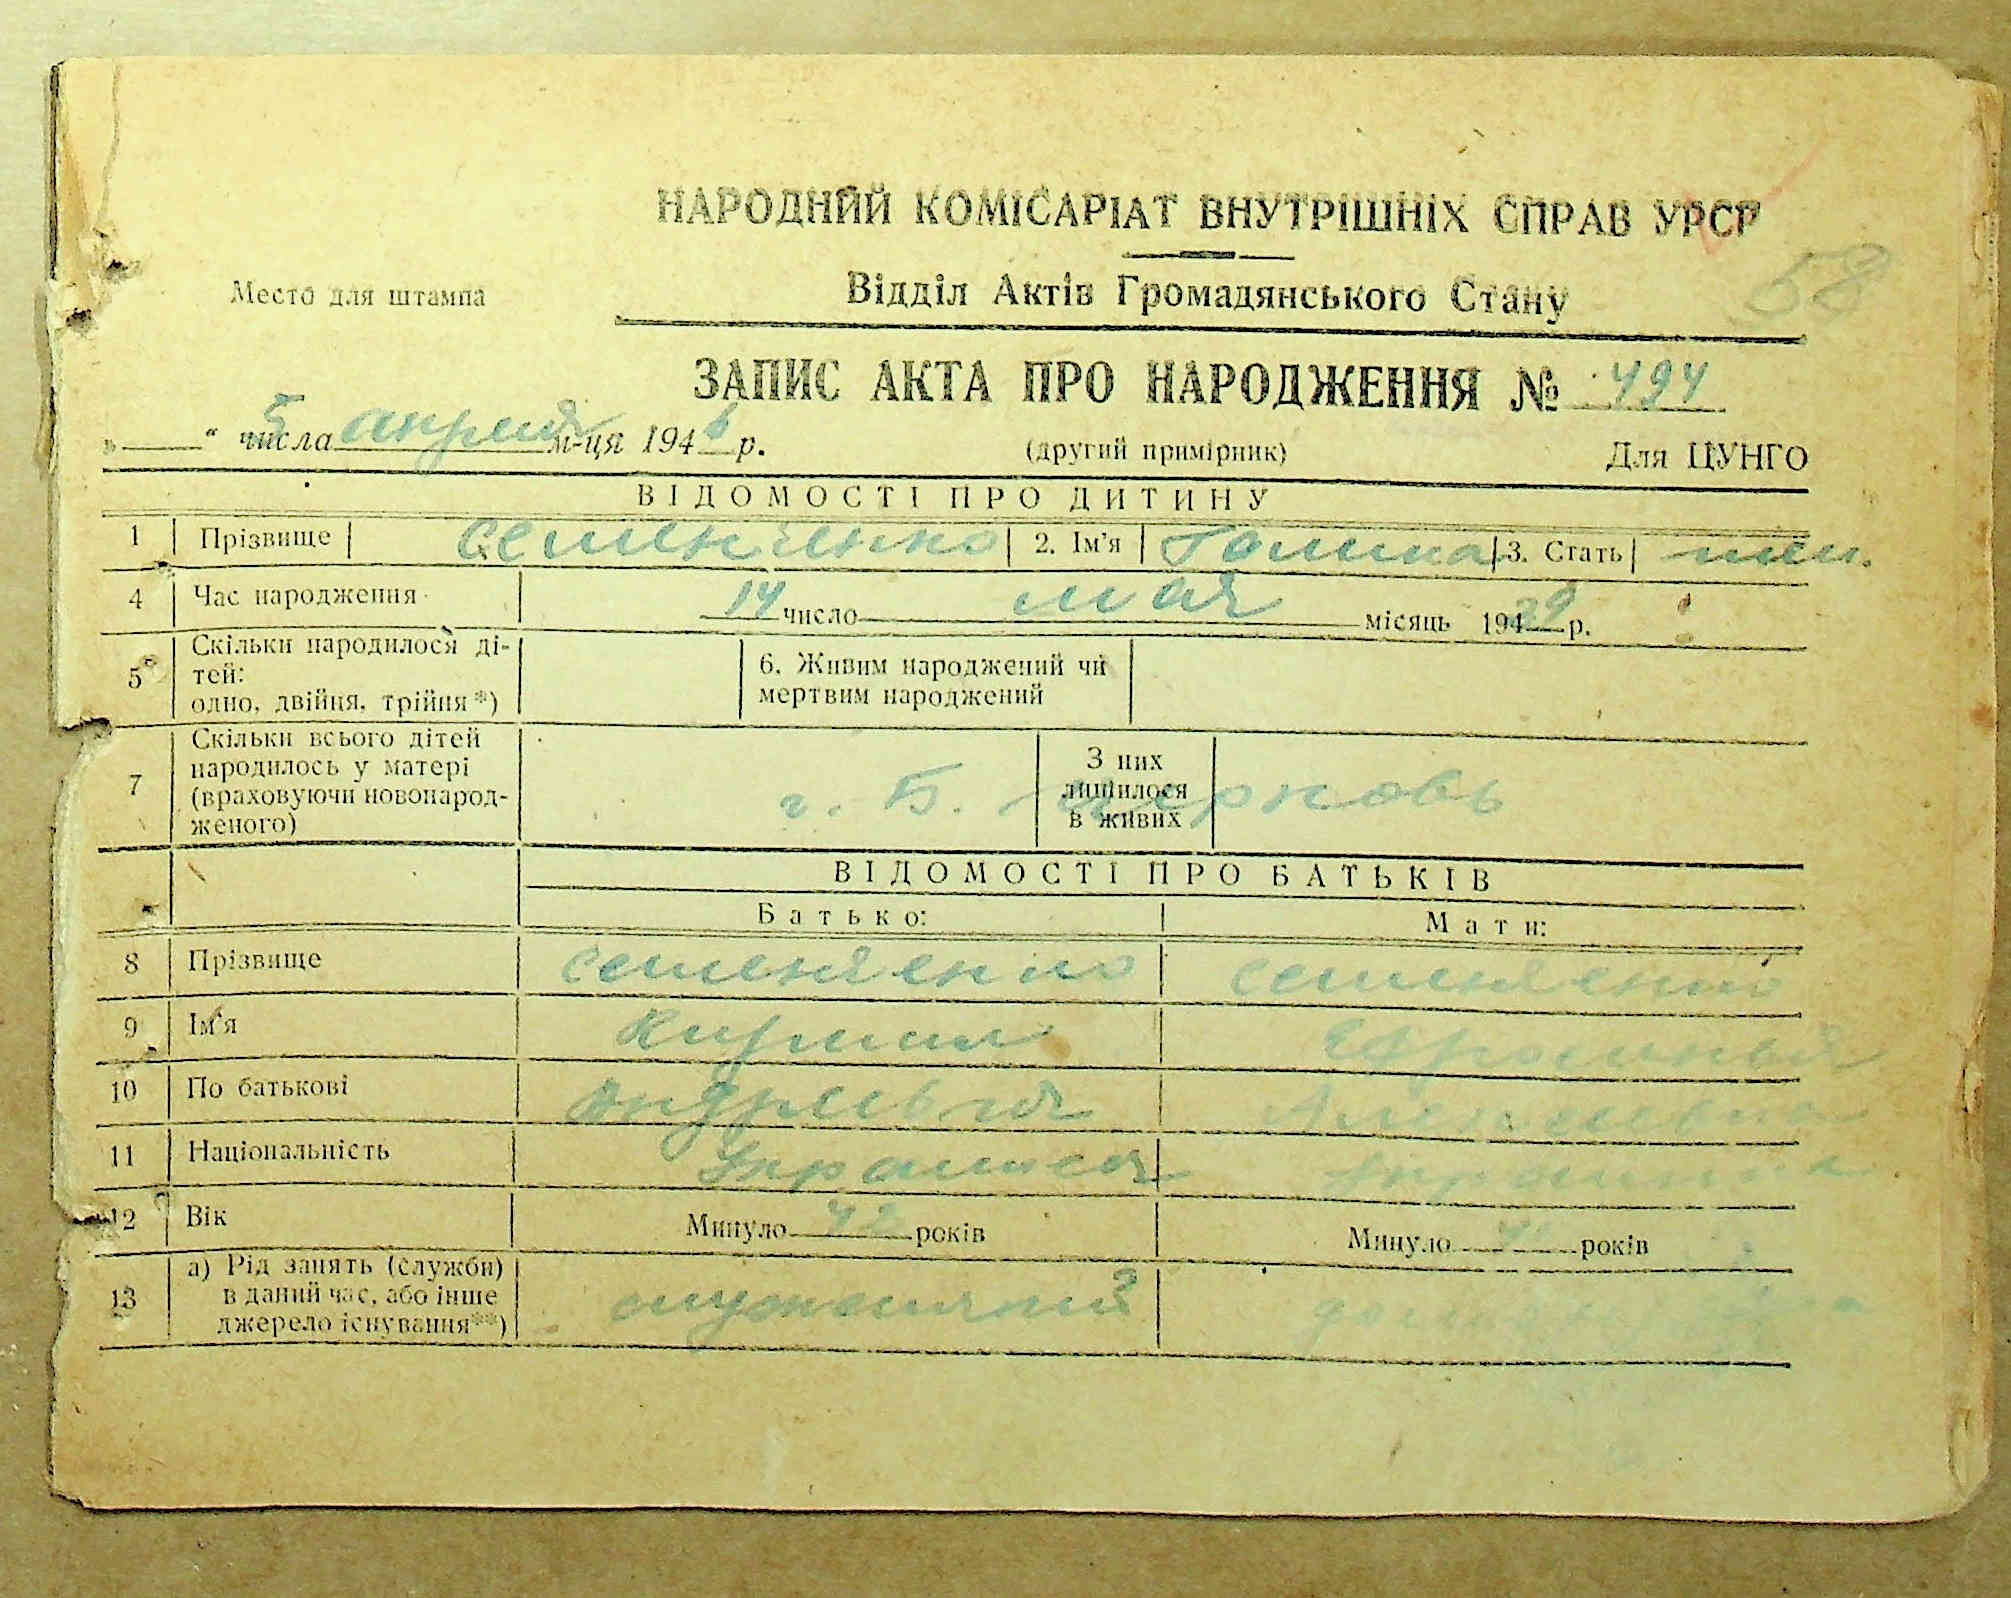 НАРОДНИЙ КОМІСАРІАТ ВНУТРІШНІХ СПРАВ УРСР
58
Место для штампа
Відділ Актів Громадянського Стану
ЗАПИС АКТА ПРО НАРОДЖЕННЯ № 494
„ “ 5 числа апреля м-ця 1946 р.
(другий примірник)
Для ЦУНГО
ВІДОМОСТІ ПРО ДИТИНУ
1 Прізвище Семенченко 2. Ім’я Галина 3. Стать жен.
4 Час народження 14 число мая місяць 1939 р.
5 Скільки народилося ді-
тей:
одно, двійня, трійня*)
6. Живим народжений чи
мертвим народжений
7 Скільки всього дітей
народилось у матері
(враховуючи новонарод-
женого)
З них
лишилося
в живих
г. Б. Церковь
ВІДОМОСТІ ПРО БАТЬКІВ
Батько: Мати:
8 Прізвище Семенченко Семенченко
9 Ім’я Кирилл
10 По батькові Андреевич Алексеевна
11 Національність Украинец Украинка
12 Вік Минуло 42 років Минуло років
13 а) Рід занять (служби)
в даний час, або інше
джерело існування**)
служащий